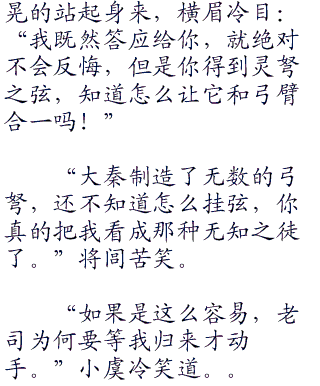 晃的站起身来，横眉冷目：
“我既然答应给你，就绝对
不会反悔，但是你得到灵弩
之弦，知道怎么让它和弓臂
合一吗！”
“大秦制造了无数的弓
弩，还不知道怎么挂弦，你
真的把我看成那种无知之徒
了。”将闾苦笑。
“如果是这么容易，老
司为何要等我归来才动
手。”小虞冷笑道。。